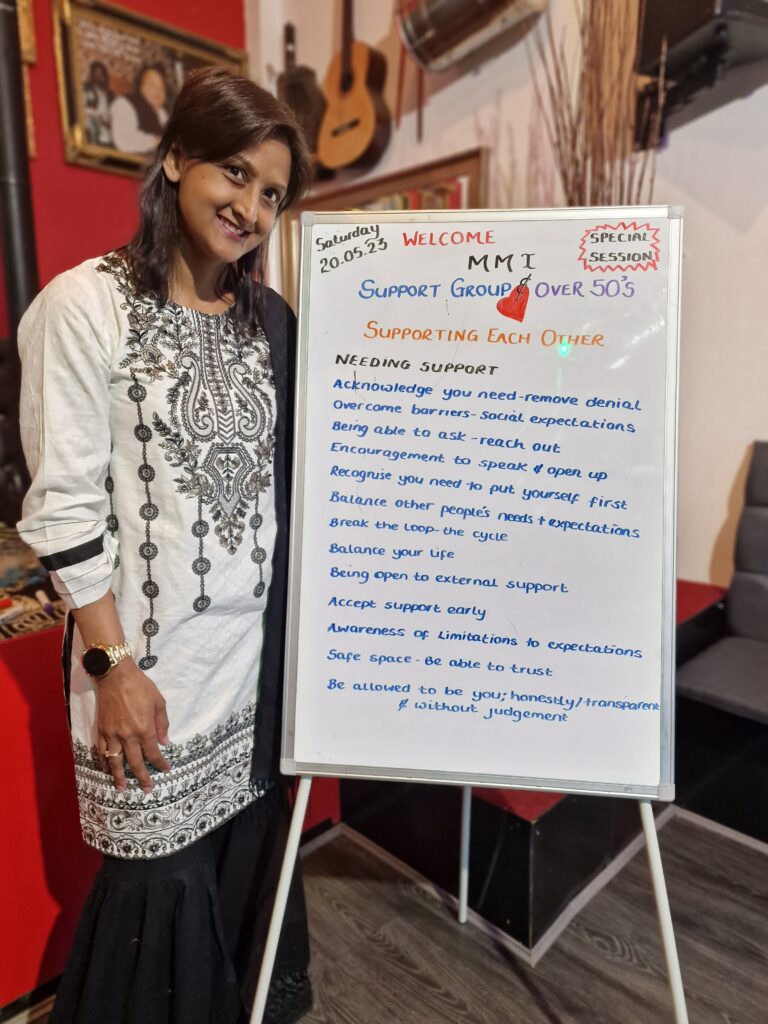 Saturday
20.05.23
WELCOME
SPECIAL
SESSION
MMI
SUPPORT GROUP & OVER 50'S
SUPPORTING EACH OTHER
NEEDING SUPPORT
Acknowledge you need-remove denial
Overcome barriers-social expectations
Being able to ask-reach out
Encouragement to speak & open up
Recognise you need to put yourself first
Balance other people's needs + expectations
Break the loop-the cycle
Balance your life
Being open to external support
Accept support early
Awareness of Limitations to expectations
Safe space - Be able to trust
Be allowed to be you; honestly/transparent
& without judgement